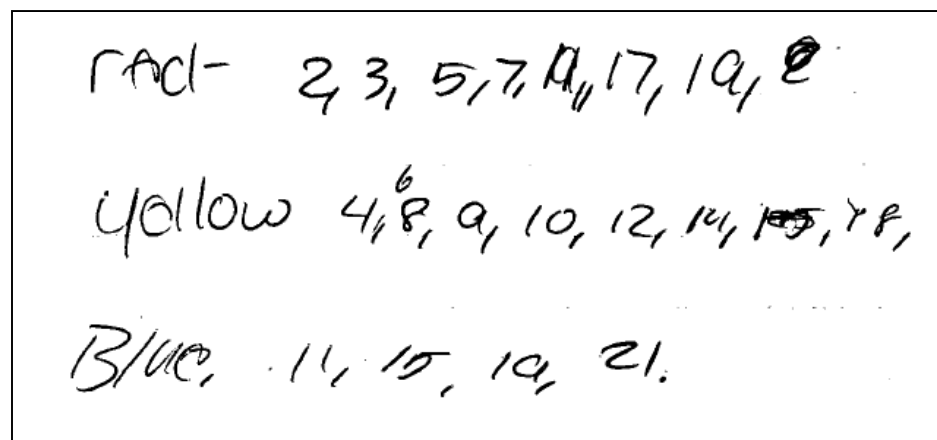 red- 2, 3, 5, 7, 17, 19,
yellow 4, 6 8, 9, 10, 12, 14, 18,
Blue, 11, 15, 19, 21.